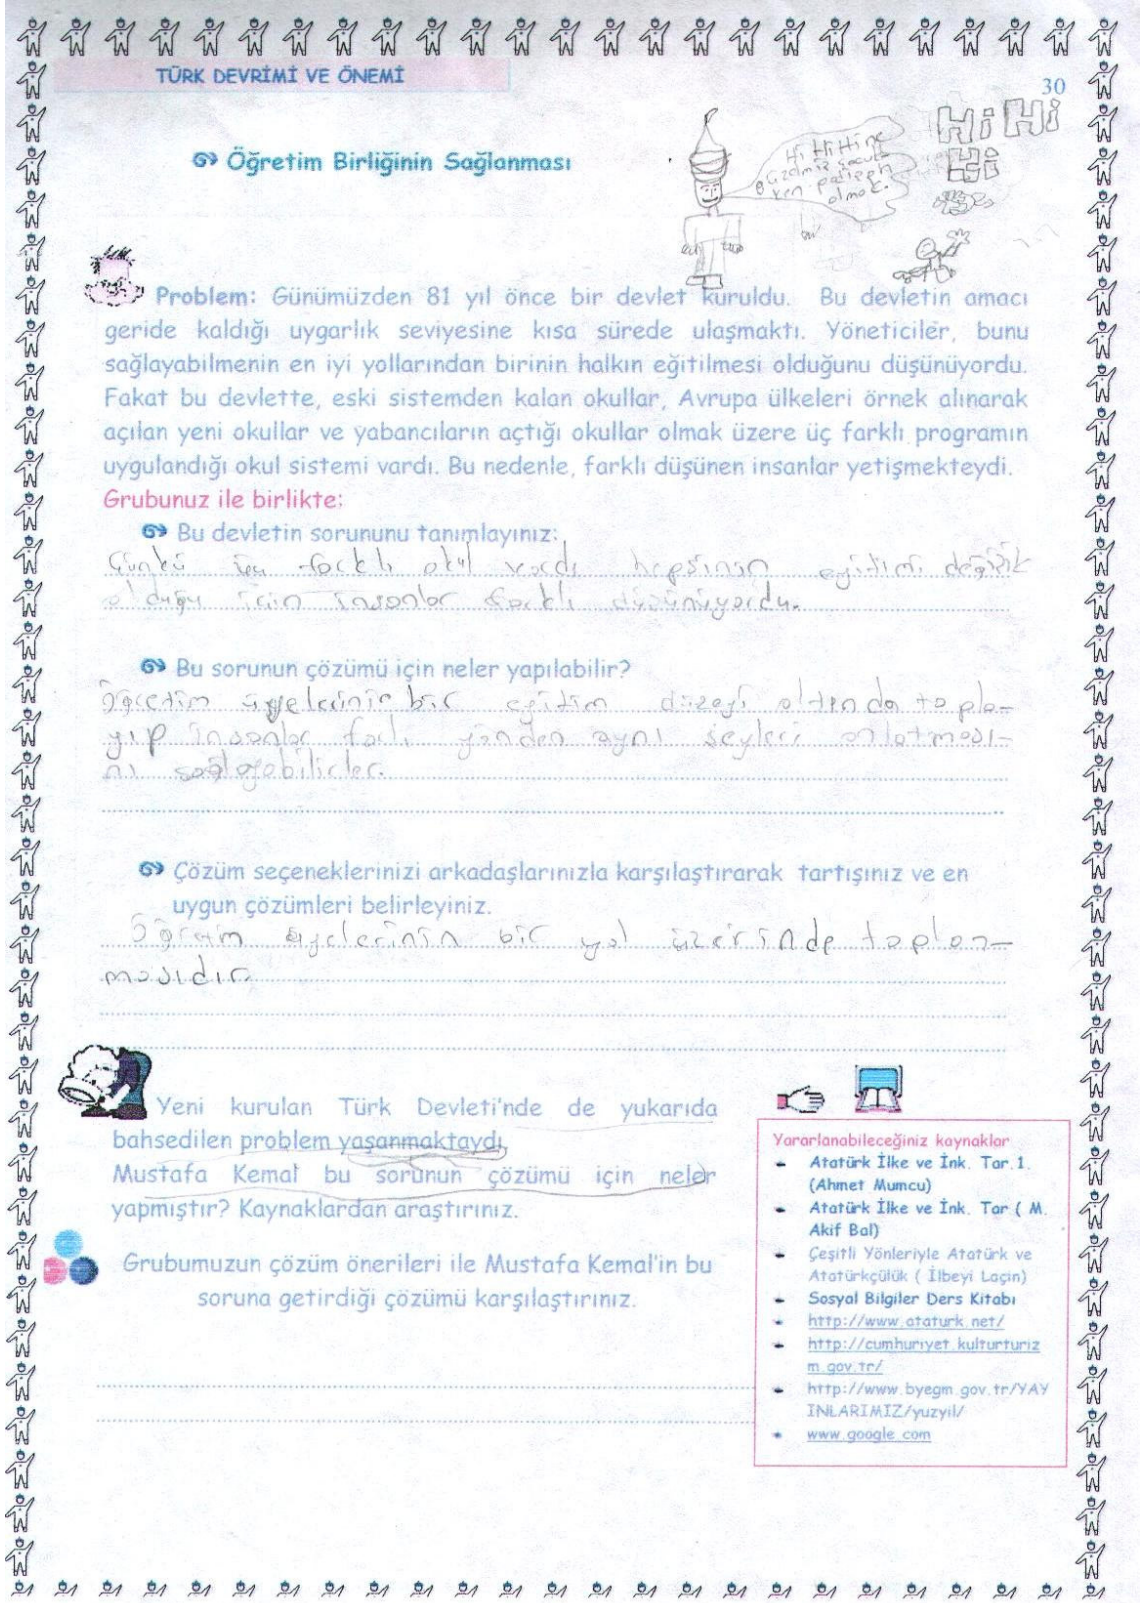 TÜRK DEVRİMİ VE ÖNEMİ
30
Öğretim Birliğinin Sağlanması
Hi Hi Hi ne
güzelmiş çocuk
ken padişah
olmak.
Hi Hi
Hi
Problem: Günümüzden 81 yıl önce bir devlet kuruldu. Bu devletin amacı
geride kaldığı uygarlık seviyesine kısa sürede ulaşmaktı. Yöneticiler, bunu
sağlayabilmenin en iyi yollarından birinin halkın eğitilmesi olduğunu düşünüyordu.
Fakat bu devlette, eski sistemden kalan okullar, Avrupa ülkeleri örnek alınarak
açılan yeni okullar ve yabancıların açtığı okullar olmak üzere üç farklı programın
uygulandığı okul sistemi vardı. Bu nedenle, farklı düşünen insanlar yetişmekteydi.
Grubunuz ile birlikte;
Bu devletin sorununu tanımlayınız:
Çünkü üç farklı okul vardı hepsinin eğitimi değişik
olduğu için insanlar farklı düşünüyordu.
Bu sorunun çözümü için neler yapılabilir?
Öğretim üyelerinin bir eğitim düzeyi altında topla-
yıp insanlar farlı yönden aynı şeyleri anlatması-
nı sağlayabilirler.
Çözüm seçeneklerinizi arkadaşlarınızla karşılaştırarak tartışınız ve en
uygun çözümleri belirleyiniz.
Öğretim üyelerinin bir yol üzerinde toplan-
masıdır
Yeni kurulan Türk Devleti'nde de yukarıda
bahsedilen problem yaşanmaktaydı.
Mustafa Kemal bu sorunun çözümü için neler
yapmıştır? Kaynaklardan araştırınız.
Grubumuzun çözüm önerileri ile Mustafa Kemal'in bu
soruna getirdiği çözümü karşılaştırınız.
Yararlanabileceğiniz kaynaklar
Atatürk İlke ve İnk. Tar.1.
(Ahmet Mumcu)
Atatürk İlke ve İnk. Tar ( M.
Akif Bal)
Çeşitli Yönleriyle Atatürk ve
Atatürkçülük ( İlbeyi Laçin)
Sosyal Bilgiler Ders Kitabı
http://www.ataturk.net/
http://cumhuriyet.kulturturiz
m.gov.tr/
http://www.byegm.gov.tr/YAY
INLARIMIZ/yuzyil/
www.google.com